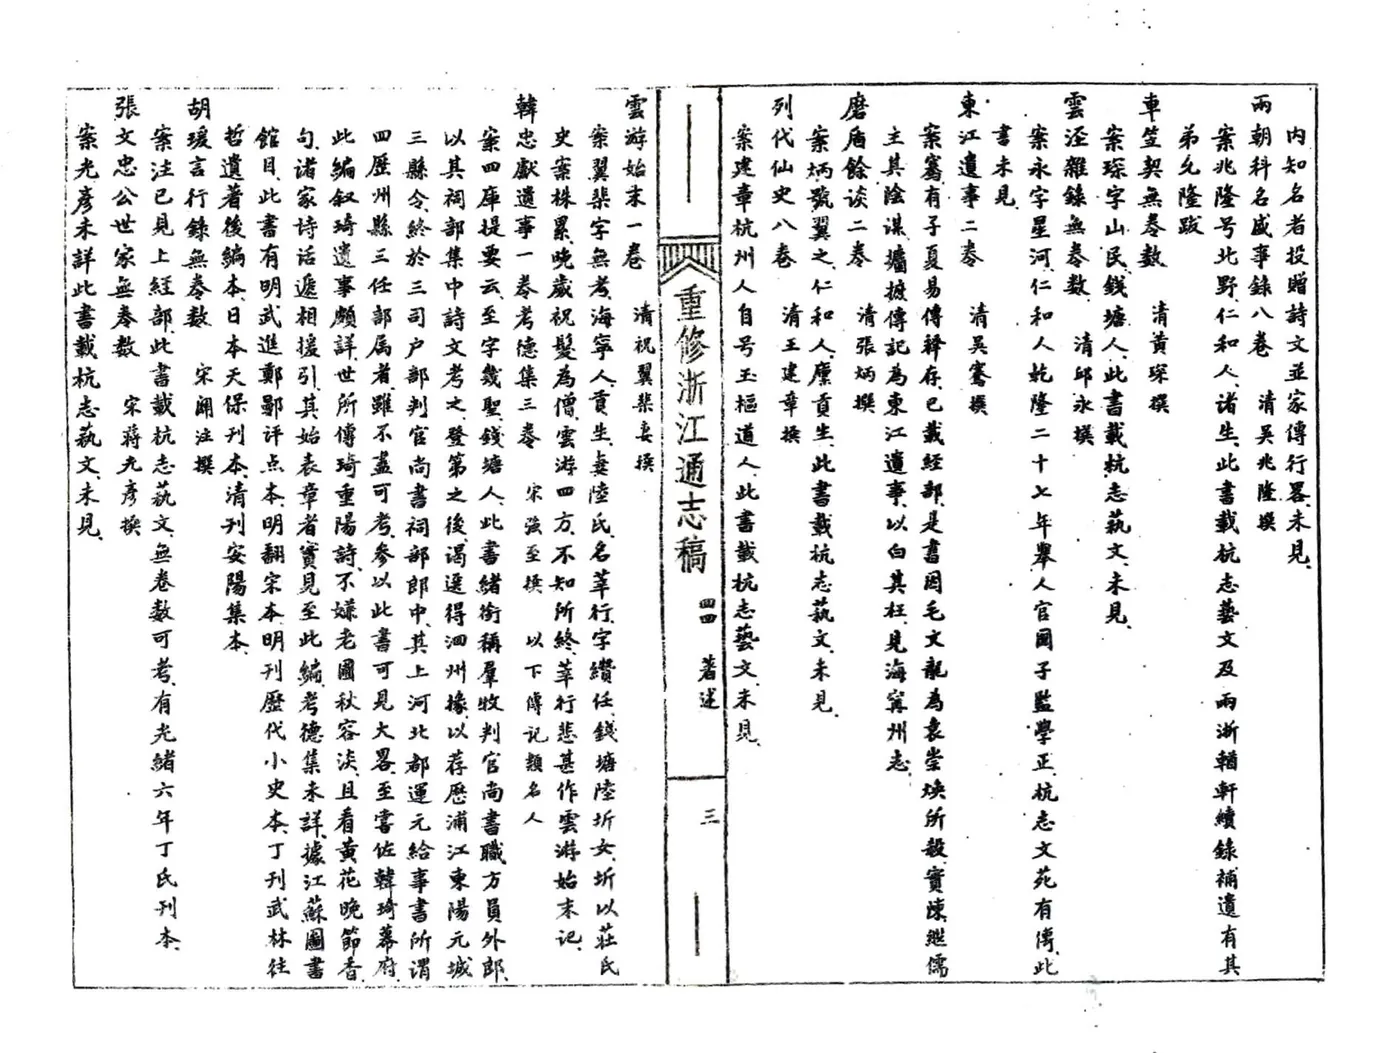 內知名者投贈詩文並家傳行畧、未見、
兩朝科名盛事錄八卷 清吳兆隆撰
案兆隆号北野、仁和人、諸生、此書載杭志藝文及兩浙輶軒續錄補遺有其
弟允隆跋
車笠契無卷數 清黃琛撰
案琛字山民、錢塘人、此書載杭志藝文、未見、
雲溼雜錄無卷數、 清邱永撰
案永字星河、仁和人、乾隆二十七年舉人官國子監學正、杭志文苑有傳、此
書未見、
東江遺事二卷 清吳騫撰
案騫有子夏易傳釋存、已載經部、是書因毛文龍為袁崇煥所殺、實陳繼儒
主其陰謀、摭傳記為東江遺事、以白其枉、見海甯州志、
磨盾餘談二卷 清張炳撰
案炳號翼之、仁和人、廩貢生、此書載杭志藝文、未見、
列代仙史八卷 清王建章撰
案建章杭州人自号玉樞道人、此書載杭志藝文、未見、
重修浙江通志稿 四四 著述 三
雲游始末一卷 清祝翼棐妻撰
案翼棐字無考、海寧人、貢生、妻陸氏、名莘行、字纘任、錢塘陸圻女、圻以莊氏
史案株累、晚歲祝髮為僧、雲游四方、不知所終、莘行悲甚作雲游始末記、
韓忠獻遺事一卷考德集三卷 宋強至撰 以下傳記類名人
案四庫提要云、至字幾聖、錢塘人、此書緒銜稱羣牧判官尚書職方員外郎、
以其祠部集中詩文考之、登第之後、謁選得泗州掾、以荐歷浦江東陽元城
三縣令、終於三司户部判官尚書祠部郎中、其上河北都運元給事書所謂
四歷州縣三任部属者、雖不盡可考、參以此書可見大畧、至嘗佐韓琦幕府、
此編叙琦遺事頗詳、世所傳琦重陽詩、不嫌老圃秋容淡、且看黃花晚節香
句、諸家詩話遞相援引、其始表章者實見至此編、考德集未詳、據江蘇圖書
館目、此書有明武進鄭鄤評点本、明翻宋本、明刊歷代小史本、丁刊武林往
哲遺著後編本、日本天保刊本、清刊安陽集本、
胡瑗言行錄無卷數 宋關注撰
案注已見上經部、此書載杭志藝文、無卷數可考、有光緒六年丁氏刊本、
張文忠公世家無卷數 宋蔣光彥撰
案光彥未詳、此書載杭志藝文、未見、